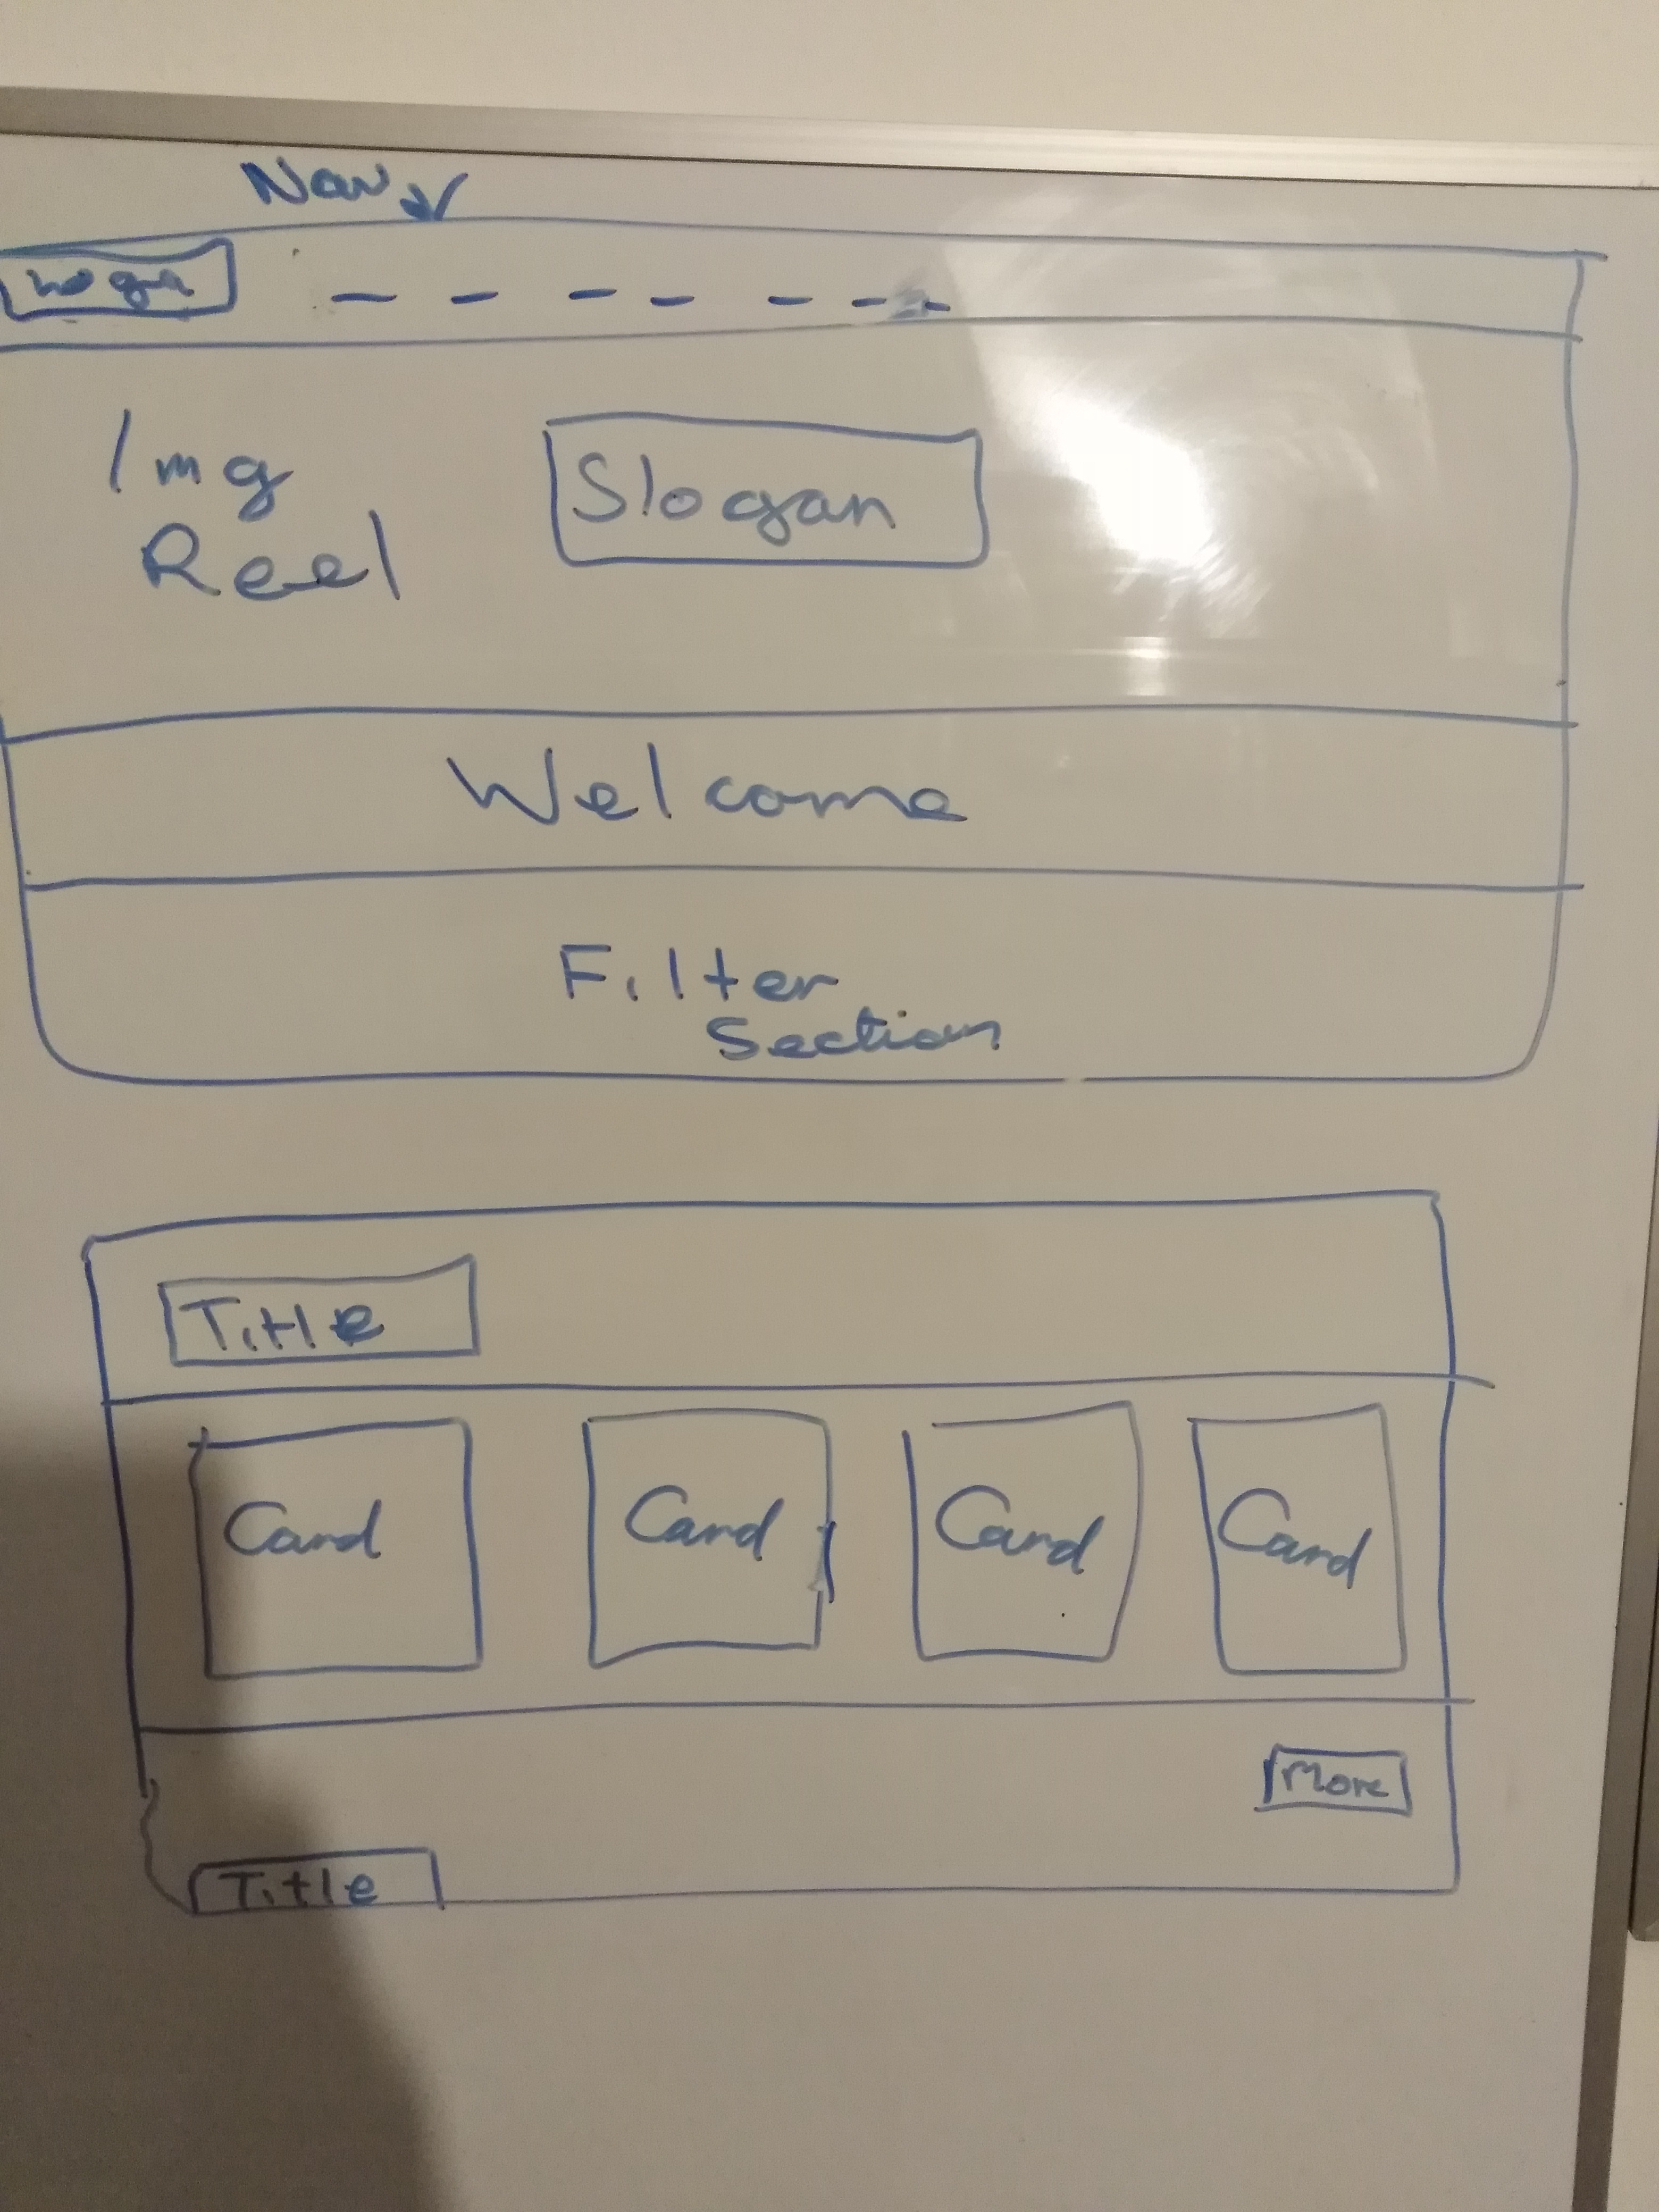 Nav
Logo
Img
Reel
Slogan
Welcome
Filter
Section
Title
Card Card Card Card
More
Title